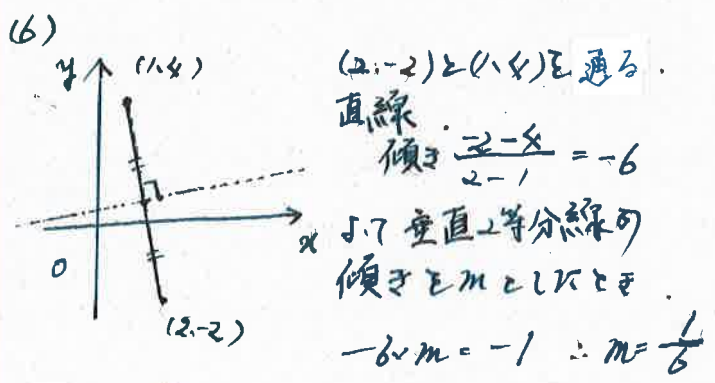 (6)
y
(1,4)
x
0
(2,-2)
(2,-2)と(1,4)を通る
直線
傾き \frac{-2-4}{2-1} = -6
よって 垂直2等分線の
傾きをmとしたとき
-6×m = -1 ∴ m = \frac{1}{6}